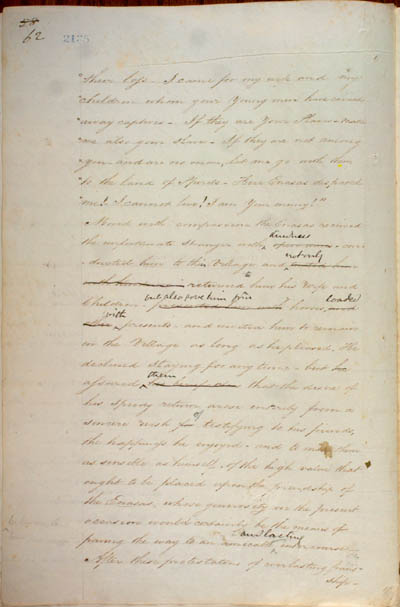 58
62
2135
"their loss – I came for my wife and my
"Children whom your Young men have carried
"away captives – If they are Your Slaves – make
"me also your Slave – If they are not among
"you and are no more, let me go with them
"to the land of Spirits –
"me! I cannot live! I am Your enemy!"
Moved with compassion the Enasas received
kindness
the unfortunate Stranger with con-
not only
ducted him to this Village and
to
returned him his Wife and
but also gave him four loaded
Children – horses
with
presents – and invited him to remain
in the Village as long as he pleased. He
declined staying for any time – but he
them
assured that the desire of
his speedy return arose entirely from a
of
sincere wish testifying to his friends,
the happiness he enjoyed – and to make them
as sensible as himself of the high value that
ought to be placed upon the friendship of
the Enasas, whose generosity on the present
occasion would certainly be the means of
and lasting
paving the way to an amicable intercourse
After these protestations of everlasting friend-
ship –